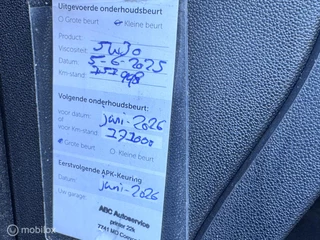 Uitgevoerde onderhoudsbeurt
Grote beurt Kleine beurt
Product:
Viscositeit: 5W30
Datum: 5-6-2025
Km-stand:
Volgende onderhoudsbeurt:
voor datum: juni-2026
of
voor km-stand: 171000
Grote beurt Kleine beurt
Eerstvolgende APK-Keuring
Datum: juni-2026
Uw garage:
ABC Autoservice
printer 22k
7741 MD
Mobilox